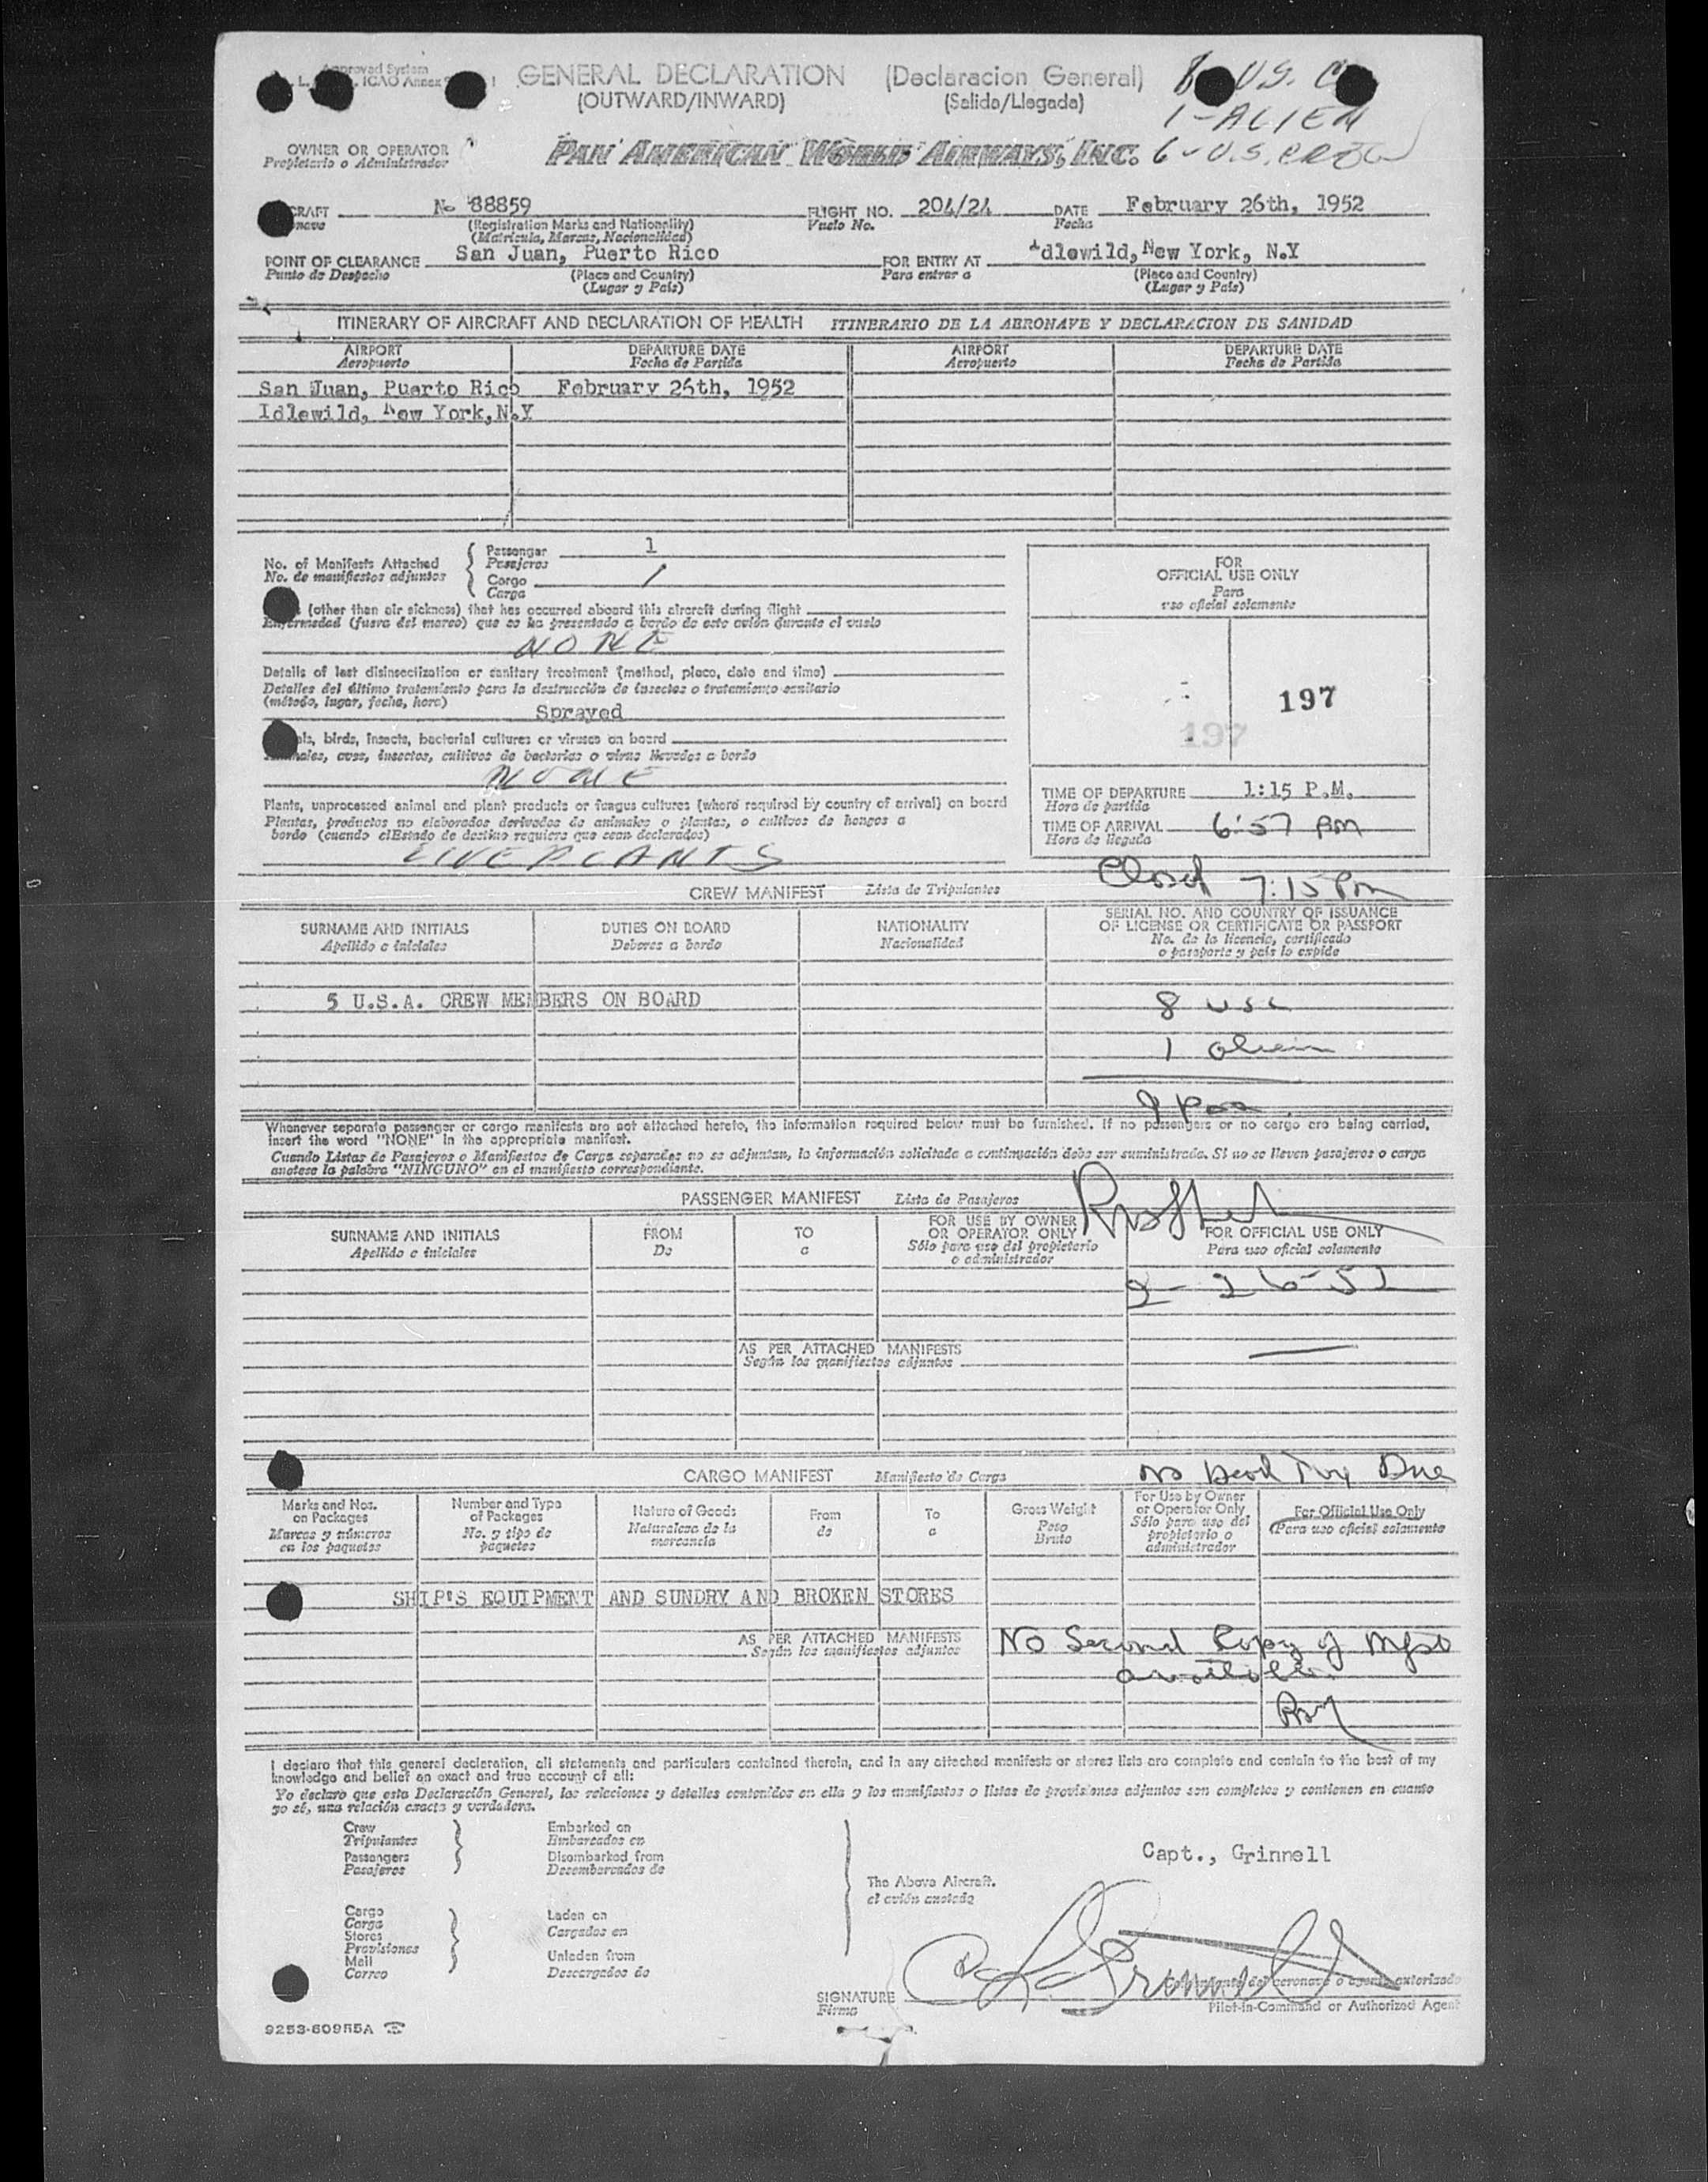 GENERAL DECLARATION (Declaracion General)
(OUTWARD/INWARD) (Salida/Llegada)
Approved System
ICAO Annex
8 U.S. C
1 - ALIEN
6 - U.S. CREW
OWNER OR OPERATOR
Propietario o Administrador
PAN AMERICAN WORLD AIRWAYS, INC.
No 88859
FLIGHT NO. 204/24
Vuelo No.
DATE February 26th, 1952
Fecha
(Registration Marks and Nationality)
(Matricula, Marcas, Nacionalidad)
POINT OF CLEARANCE San Juan, Puerto Rico
Punto de Despacho
(Place and Country)
(Lugar y País)
FOR ENTRY AT Idlewild, New York, N.Y
Para entrar a
(Place and Country)
(Lugar y País)
ITINERARY OF AIRCRAFT AND DECLARATION OF HEALTH ITINERARIO DE LA AERONAVE Y DECLARACION DE SANIDAD
AIRPORT DEPARTURE DATE AIRPORT DEPARTURE DATE
Aeropuerto Fecha de Partida Aeropuerto Fecha de Partida
San Juan, Puerto Rico February 26th, 1952
Idlewild, New York, N.Y
No. of Manifests Attached
No. de manifiestos adjuntos
Passenger 1
Pasajeros
Cargo /
Carga
(other than air sickness) that has occurred aboard this aircraft during flight
Enfermedad (fuera del mareo) que se ha presentado a bordo de este avión durante el vuelo
NONE
Details of last disinsectization or sanitary treatment (method, place, date and time)
Detalles del último tratamiento para la destrucción de insectos o tratamiento sanitario
(método, lugar, fecha, hora)
Sprayed
birds, insects, bacterial cultures or viruses on board
aves, insectos, cultivos de bacterias o virus llevados a bordo
NONE
Plants, unprocessed animal and plant products or fungus cultures (where required by country of arrival) on board
Plantas, productos no elaborados derivados de animales o plantas, o cultivos de hongos a
bordo (cuando elEstado de destino requiera que sean declarados)
LIVE PLANTS
FOR
OFFICIAL USE ONLY
Para
uso oficial solamente
197
197
TIME OF DEPARTURE 1:15 P.M.
Hora de partida
TIME OF ARRIVAL 6:57 pm
Hora de llegada
Closed 7:15 Pm
CREW MANIFEST Lista de Tripulantes
SURNAME AND INITIALS DUTIES ON BOARD NATIONALITY SERIAL NO. AND COUNTRY OF ISSUANCE
OF LICENSE OR CERTIFICATE OR PASSPORT
Apellido e iniciales Deberes a bordo Nacionalidad No. de la licencia, certificado
o pasaporte y país lo expide
5 U.S.A. CREW MEMBERS ON BOARD
8 usc
1 alien
9 Pax
Whenever separate passenger or cargo manifests are not attached hereto, the information required below must be furnished. If no passengers or no cargo are being carried,
insert the word "NONE" in the appropriate manifest.
Cuando Listas de Pasajeros o Manifiestos de Carga separadas no se adjuntan, la información solicitada a continuación debe ser suministrada. Si no se lleven pasajeros o carga
anotese la palabra "NINGUNO" en el manifiesto correspondiente.
PASSENGER MANIFEST Lista de Pasajeros
SURNAME AND INITIALS FROM TO FOR USE BY OWNER
OR OPERATOR ONLY FOR OFFICIAL USE ONLY
Apellido e iniciales De a Sólo para uso del propietario
o administrador Para uso oficial solamente
2-26-52
AS PER ATTACHED MANIFESTS
Según los manifiestos adjuntos
CARGO MANIFEST Manifiesto de Carga
No Head Tax Due
Marks and Nos.
on Packages
Marcas y números
en los paquetes
Number and Type
of Packages
No. y tipo de
paquetes
Nature of Goods
Naturaleza de la
mercancia
From
de
To
a
Gross Weight
Peso
Bruto
For Use by Owner
or Operator Only
Sólo para uso del
propietario o
administrador
For Official Use Only
(Para uso oficial solamente
SHIP'S EQUIPMENT AND SUNDRY AND BROKEN STORES
AS PER ATTACHED MANIFESTS
Según los manifiestos adjuntos
No Second Copy of Mfst
available
I declare that this general declaration, all statements and particulars contained therein, and in any attached manifests or stores lists are complete and contain to the best of my
knowledge and belief an exact and true account of all:
Yo declaro que esta Declaración General, las relaciones y detalles contenidos en ella y los manifiestos o listas de provisiones adjuntos son completos y contienen en cuanto
yo sé, una relación exacta y verdadera.
Crew
Tripulantes
Passengers
Pasajeros
Embarked on
Embarcados en
Disembarked from
Desembarcados de
Cargo
Carga
Stores
Provisiones
Mail
Correo
Laden on
Cargados en
Unladen from
Descargados de
The Above Aircraft.
el avión anotado
Capt., Grinnell
SIGNATURE
Firma
aeronave o agente autorizado
Pilot-in-Command or Authorized Agent
9253-60955A